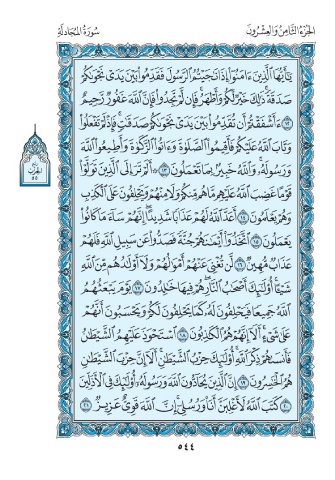 الجزء الثامن والعشرون
سورة المجادلة
يَٰٓأَيُّهَا ٱلَّذِينَ ءَامَنُوٓا۟ إِذَا نَٰجَيْتُمُ ٱلرَّسُولَ فَقَدِّمُوا۟ بَيْنَ يَدَىْ نَجْوَىٰكُمْ
صَدَقَةً ۚ ذَٰلِكَ خَيْرٌ لَّكُمْ وَأَطْهَرُ ۚ فَإِن لَّمْ تَجِدُوا۟ فَإِنَّ ٱللَّهَ غَفُورٌ رَّحِيمٌ
١٢ ءَأَشْفَقْتُمْ أَن تُقَدِّمُوا۟ بَيْنَ يَدَىْ نَجْوَىٰكُمْ صَدَقَٰتٍ ۚ فَإِذْ لَمْ تَفْعَلُوا۟
وَتَابَ ٱللَّهُ عَلَيْكُمْ فَأَقِيمُوا۟ ٱلصَّلَوٰةَ وَءَاتُوا۟ ٱلزَّكَوٰةَ وَأَطِيعُوا۟ ٱللَّهَ
وَرَسُولَهُۥ ۚ وَٱللَّهُ خَبِيرٌۢ بِمَا تَعْمَلُونَ ١٣ أَلَمْ تَرَ إِلَى ٱلَّذِينَ تَوَلَّوْا۟
قَوْمًا غَضِبَ ٱللَّهُ عَلَيْهِم مَّا هُم مِّنكُمْ وَلَا مِنْهُمْ وَيَحْلِفُونَ عَلَى ٱلْكَذِبِ
وَهُمْ يَعْلَمُونَ ١٤ أَعَدَّ ٱللَّهُ لَهُمْ عَذَابًا شَدِيدًا ۖ إِنَّهُمْ سَآءَ مَا كَانُوا۟
يَعْمَلُونَ ١٥ ٱتَّخَذُوٓا۟ أَيْمَٰنَهُمْ جُنَّةً فَصَدُّوا۟ عَن سَبِيلِ ٱللَّهِ فَلَهُمْ
عَذَابٌ مُّهِينٌ ١٦ لَّن تُغْنِىَ عَنْهُمْ أَمْوَٰلُهُمْ وَلَآ أَوْلَٰدُهُم مِّنَ ٱللَّهِ
شَيْـًٔا ۚ أُو۟لَٰٓئِكَ أَصْحَٰبُ ٱلنَّارِ ۖ هُمْ فِيهَا خَٰلِدُونَ ١٧ يَوْمَ يَبْعَثُهُمُ
ٱللَّهُ جَمِيعًا فَيَحْلِفُونَ لَهُۥ كَمَا يَحْلِفُونَ لَكُمْ ۖ وَيَحْسَبُونَ أَنَّهُمْ
عَلَىٰ شَىْءٍ ۚ أَلَآ إِنَّهُمْ هُمُ ٱلْكَٰذِبُونَ ١٨ ٱسْتَحْوَذَ عَلَيْهِمُ ٱلشَّيْطَٰنُ
فَأَنسَىٰهُمْ ذِكْرَ ٱللَّهِ ۚ أُو۟لَٰٓئِكَ حِزْبُ ٱلشَّيْطَٰنِ ۚ أَلَآ إِنَّ حِزْبَ ٱلشَّيْطَٰنِ
هُمُ ٱلْخَٰسِرُونَ ١٩ إِنَّ ٱلَّذِينَ يُحَآدُّونَ ٱللَّهَ وَرَسُولَهُۥٓ أُو۟لَٰٓئِكَ فِى ٱلْأَذَلِّينَ
٢٠ كَتَبَ ٱللَّهُ لَأَغْلِبَنَّ أَنَا۠ وَرُسُلِىٓ ۚ إِنَّ ٱللَّهَ قَوِىٌّ عَزِيزٌ ٢١
الحزب
٥٥
٥٤٤